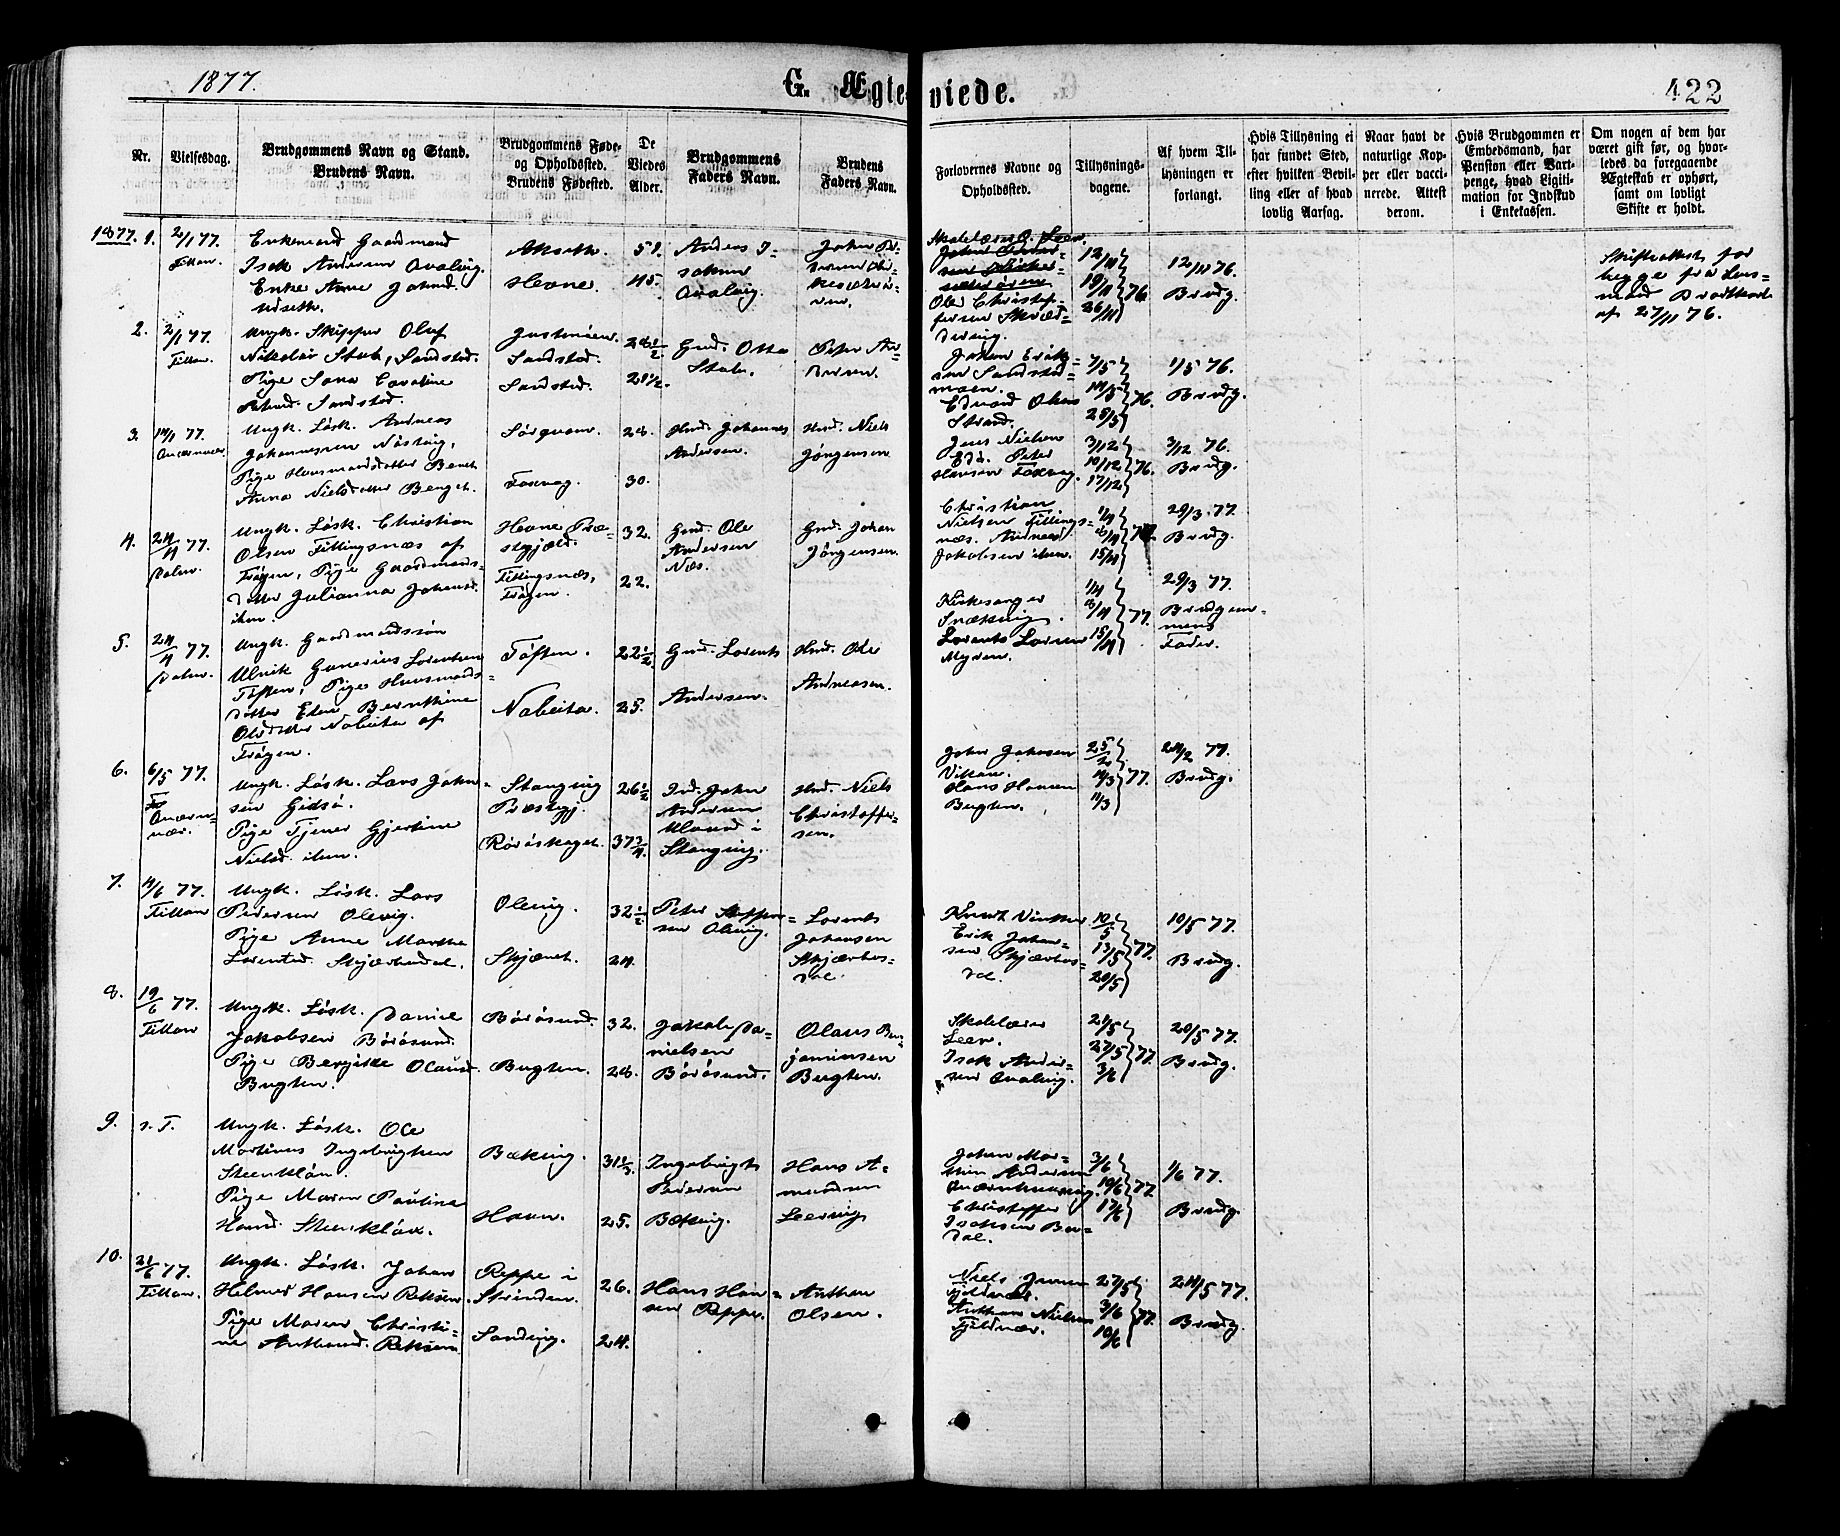 1877.
G. Ægteviede.
422
Nr.
Vielsesdag.
Brudgommens Navn og Stand.
Brudens Navn.
Brudgommens Føde-
og Opholdssted.
Brudens Fødested.
De
Viedes
Alder.
Brudgommens
Faders Navn.
Brudens
Faders Navn.
Forlovernes Navne og
Opholdssted.
Tillysnings-
dagene.
Af hvem Til-
lysningen er
forlangt.
Hvis Tillysning ei
har fundet Sted,
efter hvilken Bevil-
ling eller af hvad
lovlig Aarsag.
Naar havt de
naturlige Kop-
per eller vacci-
nerede. Attest
derom.
Hvis Brudgommen er
Embedsmand, har
Pension eller Vart-
penge, hvad Ligiti-
mation for Indskud
i Enkekassen.
Om nogen af dem har
været gift før, og hvor-
ledes da foregaaende
Ægteskab er ophørt,
samt om lovligt
Skifte er holdt.
1877. 1.
2/1 77.
Fillan.
Enkemand Gaardmand
Isak Andersen Qvalvig.
Enke Anne Johnsd.
Hevne.
51.
45.
Anders I-
saksen
Qvalvig.
Skolelærer O. Leer.
Ole Christof-
fersen
12/11
19/11
26/11
76.
12/11 76.
Brudg.
Skifteattest for
begge fra Lens-
mand
af 27/11 76.
2.
2/1 77.
Fillan.
Ungk. Skipper Oluf
Nikolai Stub, Sandstad.
Pige Sara Caroline
Sandstad.
Sandstad.
Sandstad.
28 1/2
28 1/2.
Gmd. Otto
Stub.
Peter
Johan Erik-
sen Sandstad-
moen.
Edvard Olsen
Strand.
7/5
14/5
28/5
76.
1/5 76.
Brudg.
3.
14/1 77.
Qværnvær
Ungk. Løsk. Andreas
Johannessen
Pige Husmandsdatter Beret
Anna Nielsdatter
28.
30.
Hmd. Johannes
Andersen.
Hmd. Niels
Jørgensen
Jens Nielsen
Peter
Hansen
3/12
10/12
17/12
76.
3/12 76.
Brudg.
4.
24/4 77.
Dolm.
Ungk. Løsk. Christian
Olsen Fillingsnæs af
Frøyen, Pige Gaardmands-
datter Julianna Johansd.
ibm.
Hevne Præ-
stgjæld.
Fillingsnæs,
Frøyen.
32.
22.
Gmd. Ole
Andersen
Næs.
Gmd. Johan
Jørgensen.
Christian
Nielsen Fillings-
næs. Andreas
Jakobsen ibm.
1/4
8/4
15/4
77.
29/3 77.
Brudg.
5.
24/4 77.
Dolm.
Ungk. Gaardmandssøn
Ulrik Gunerius Lorentsen
Tøften, Pige Husmands-
datter Elen Bernthine
Olsdatter Nabeita af
Frøyen.
Tøften.
Nabeita.
22 1/2
25.
Gmd. Lorents
Andersen.
Hmd. Ole
Andreasen.
Kirkesanger
Snekvig.
Lorents Larsen
Myren.
1/4
8/4
15/4
77.
29/3 77.
Brudgom-
mens
Fader.
6.
6/5 77.
Qværn-
vær.
Ungk. Løsk. Lars John-
sen Gidsø.
Pige Tjener Gjertine
Nielsd. ibm.
Stangvig
Præstegj.
Rørøskaget.
26 1/2
37 3/4.
Ind. John
Andersen
Uland i
Stangvig.
Hmd. Niels
Christoffer-
sen.
John Johnsen
Vikan.
Hans Hansen
Bugten.
25/2
4/3
11/3
77.
24/2 77.
Brudg.
7.
4/6 77.
Fillan
Ungk. Løsk. Lars
Pedersen Olevig.
Pige Anne Marthe
Lorentsd. Skjærbusdal.
Olevig.
32 1/2
24.
Peter
sen Olevig.
Lorents
Johansen
Skjærbus-
dal.
Knut
Erik Johan-
sen Skjærbus-
dal
10/5
13/5
20/5
77.
10/5 77.
Brudg.
8.
19/6 77.
Fillan
Ungk. Løsk. Daniel
Jakobsen Børøsund.
Pige Bergitte Olausd.
Bugten.
Børøsund.
Bugten.
32.
28.
Jakob Da-
nielsen
Børøsund.
Olaus Ben-
jaminsen
Bugten.
Skolelærer
Leer.
Isak Ander-
sen Qvalvig.
21/5
27/5
3/6
77.
20/5 77.
Brudg.
9.
s. T.
Ungk. Løsk. Ole
Martinus Ingebrigtsen
Pige Maren Pauline
Hansd.
Bækvig.
Havn.
31 1/3
25.
Ingebrigt
Pedersen
Bækvig.
Hans A-
mundsen
Leervig
Johan Mar-
tin Andersen
Christoffer
Isaksen
3/6
10/6
17/6
77.
1/6 77.
Brudg.
10.
21/6 77.
Fillan.
Ungk. Løsk. Johan
Helmer Hansen Reksen.
Pige Maren Christi-
ne Anthonsd. Reksen
Reppe i
Strinden.
Sandvig.
26.
24.
Hans Han-
sen Reppe.
Anthon
Olsen.
Niels Jensen
Fjeldvær.
Anthon Nielsen
Fjeldvær.
27/5
3/6
10/6
77.
24/5 77.
Brudg.